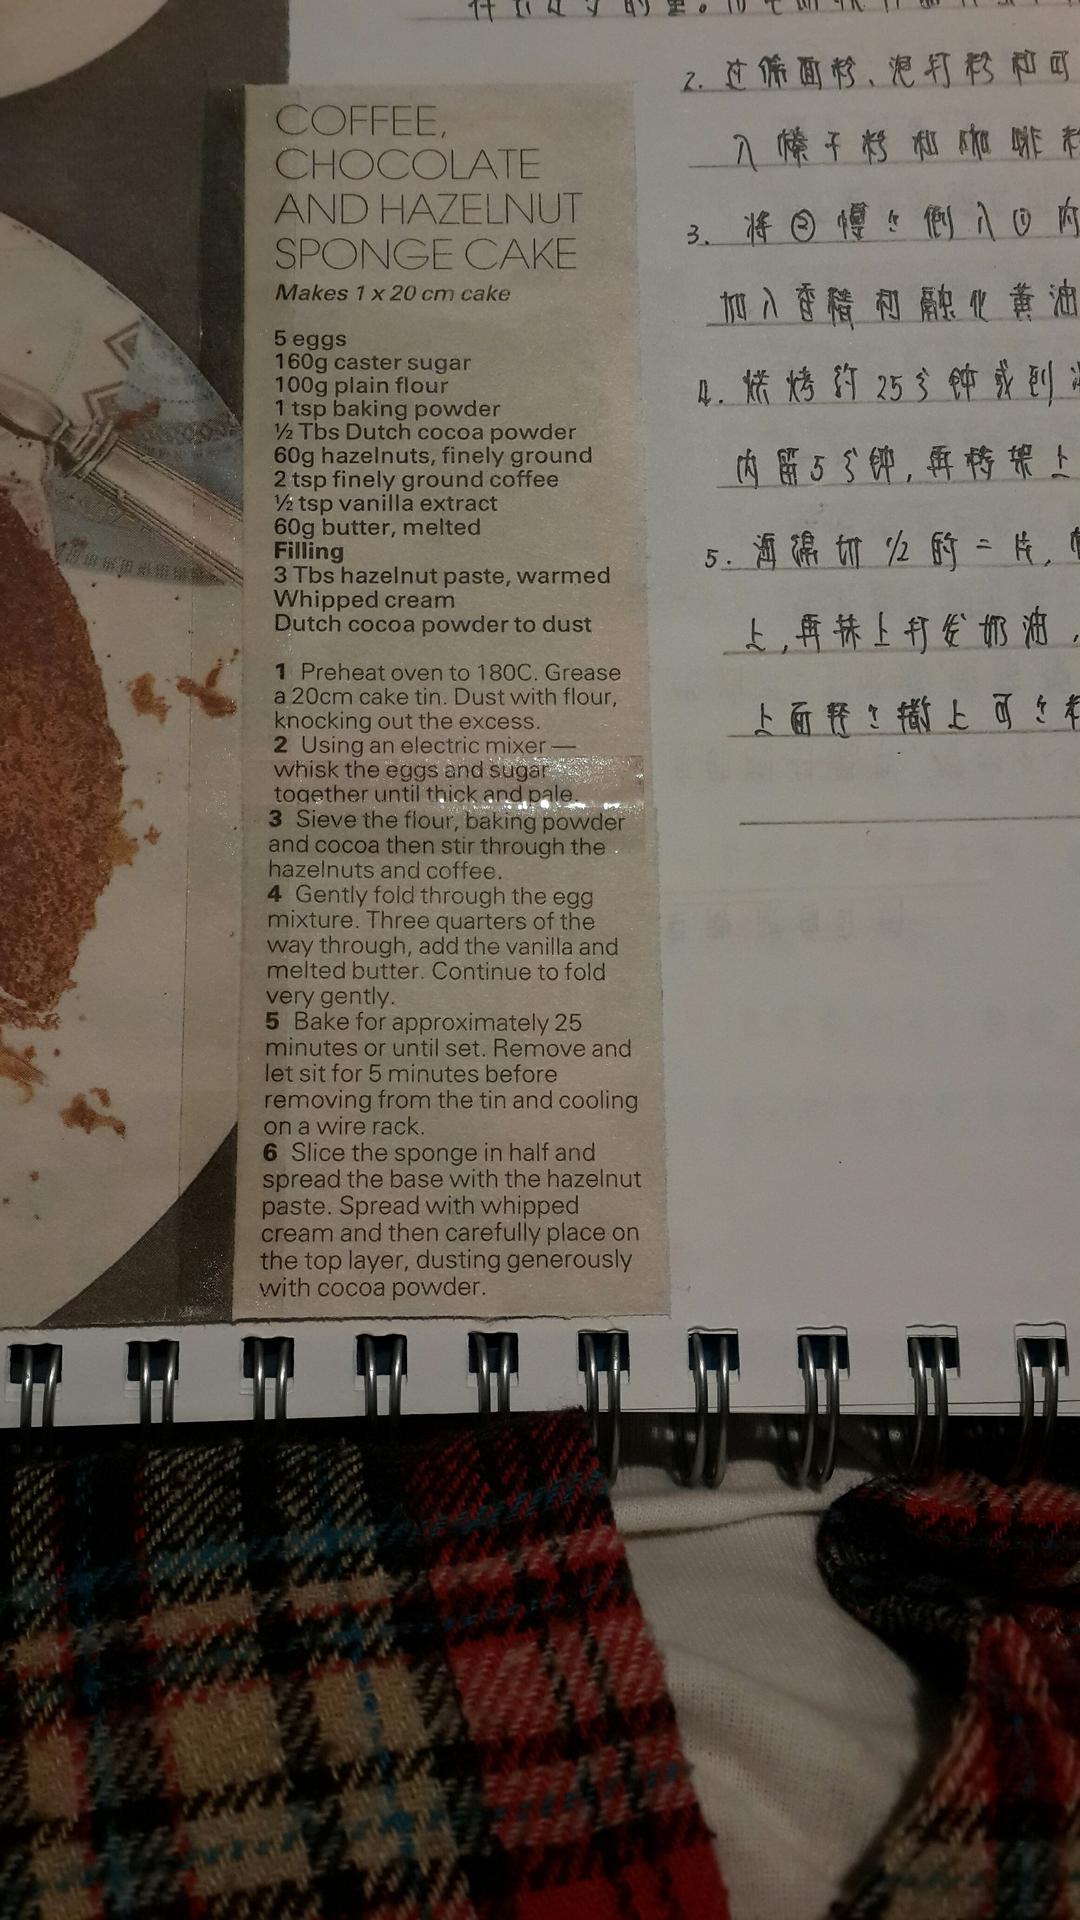 COFFEE,
CHOCOLATE
AND HAZELNUT
SPONGE CAKE
Makes 1 x 20 cm cake
5 eggs
160g caster sugar
100g plain flour
1 tsp baking powder
½ Tbs Dutch cocoa powder
60g hazelnuts, finely ground
2 tsp finely ground coffee
½ tsp vanilla extract
60g butter, melted
Filling
3 Tbs hazelnut paste, warmed
Whipped cream
Dutch cocoa powder to dust
1 Preheat oven to 180C. Grease
a 20cm cake tin. Dust with flour,
knocking out the excess.
2 Using an electric mixer —
whisk the eggs and sugar
together until thick and pale.
3 Sieve the flour, baking powder
and cocoa then stir through the
hazelnuts and coffee.
4 Gently fold through the egg
mixture. Three quarters of the
way through, add the vanilla and
melted butter. Continue to fold
very gently.
5 Bake for approximately 25
minutes or until set. Remove and
let sit for 5 minutes before
removing from the tin and cooling
on a wire rack.
6 Slice the sponge in half and
spread the base with the hazelnut
paste. Spread with whipped
cream and then carefully place on
the top layer, dusting generously
with cocoa powder.
2. 过筛面粉、泡打粉和可
入榛子粉和咖啡粉
3. 将②慢々倒入①内
加入香精和融化黄油
4. 烘烤约25分钟或到
内留5分钟,再移架上
5. 海绵切1/2的二片,
上,再抹上打发奶油,
上面轻々撒上可々粉